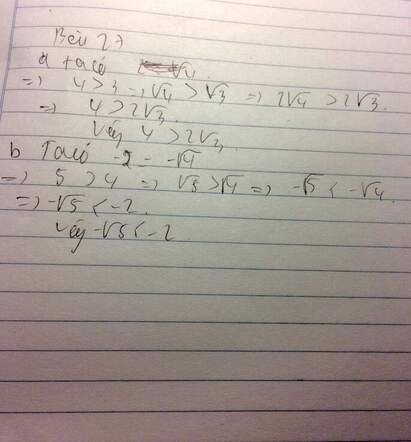 Bài 27
a ta có
=> 4 > 3 => √4 > √3 => 2√4 > 2√3.
=> 4 > 2√3.
Vậy 4 > 2√3
b Ta có -2 = -√4
=> 5 > 4 => √5 > √4 => -√5 < -√4.
=> -√5 < -2.
Vậy -√5 < -2